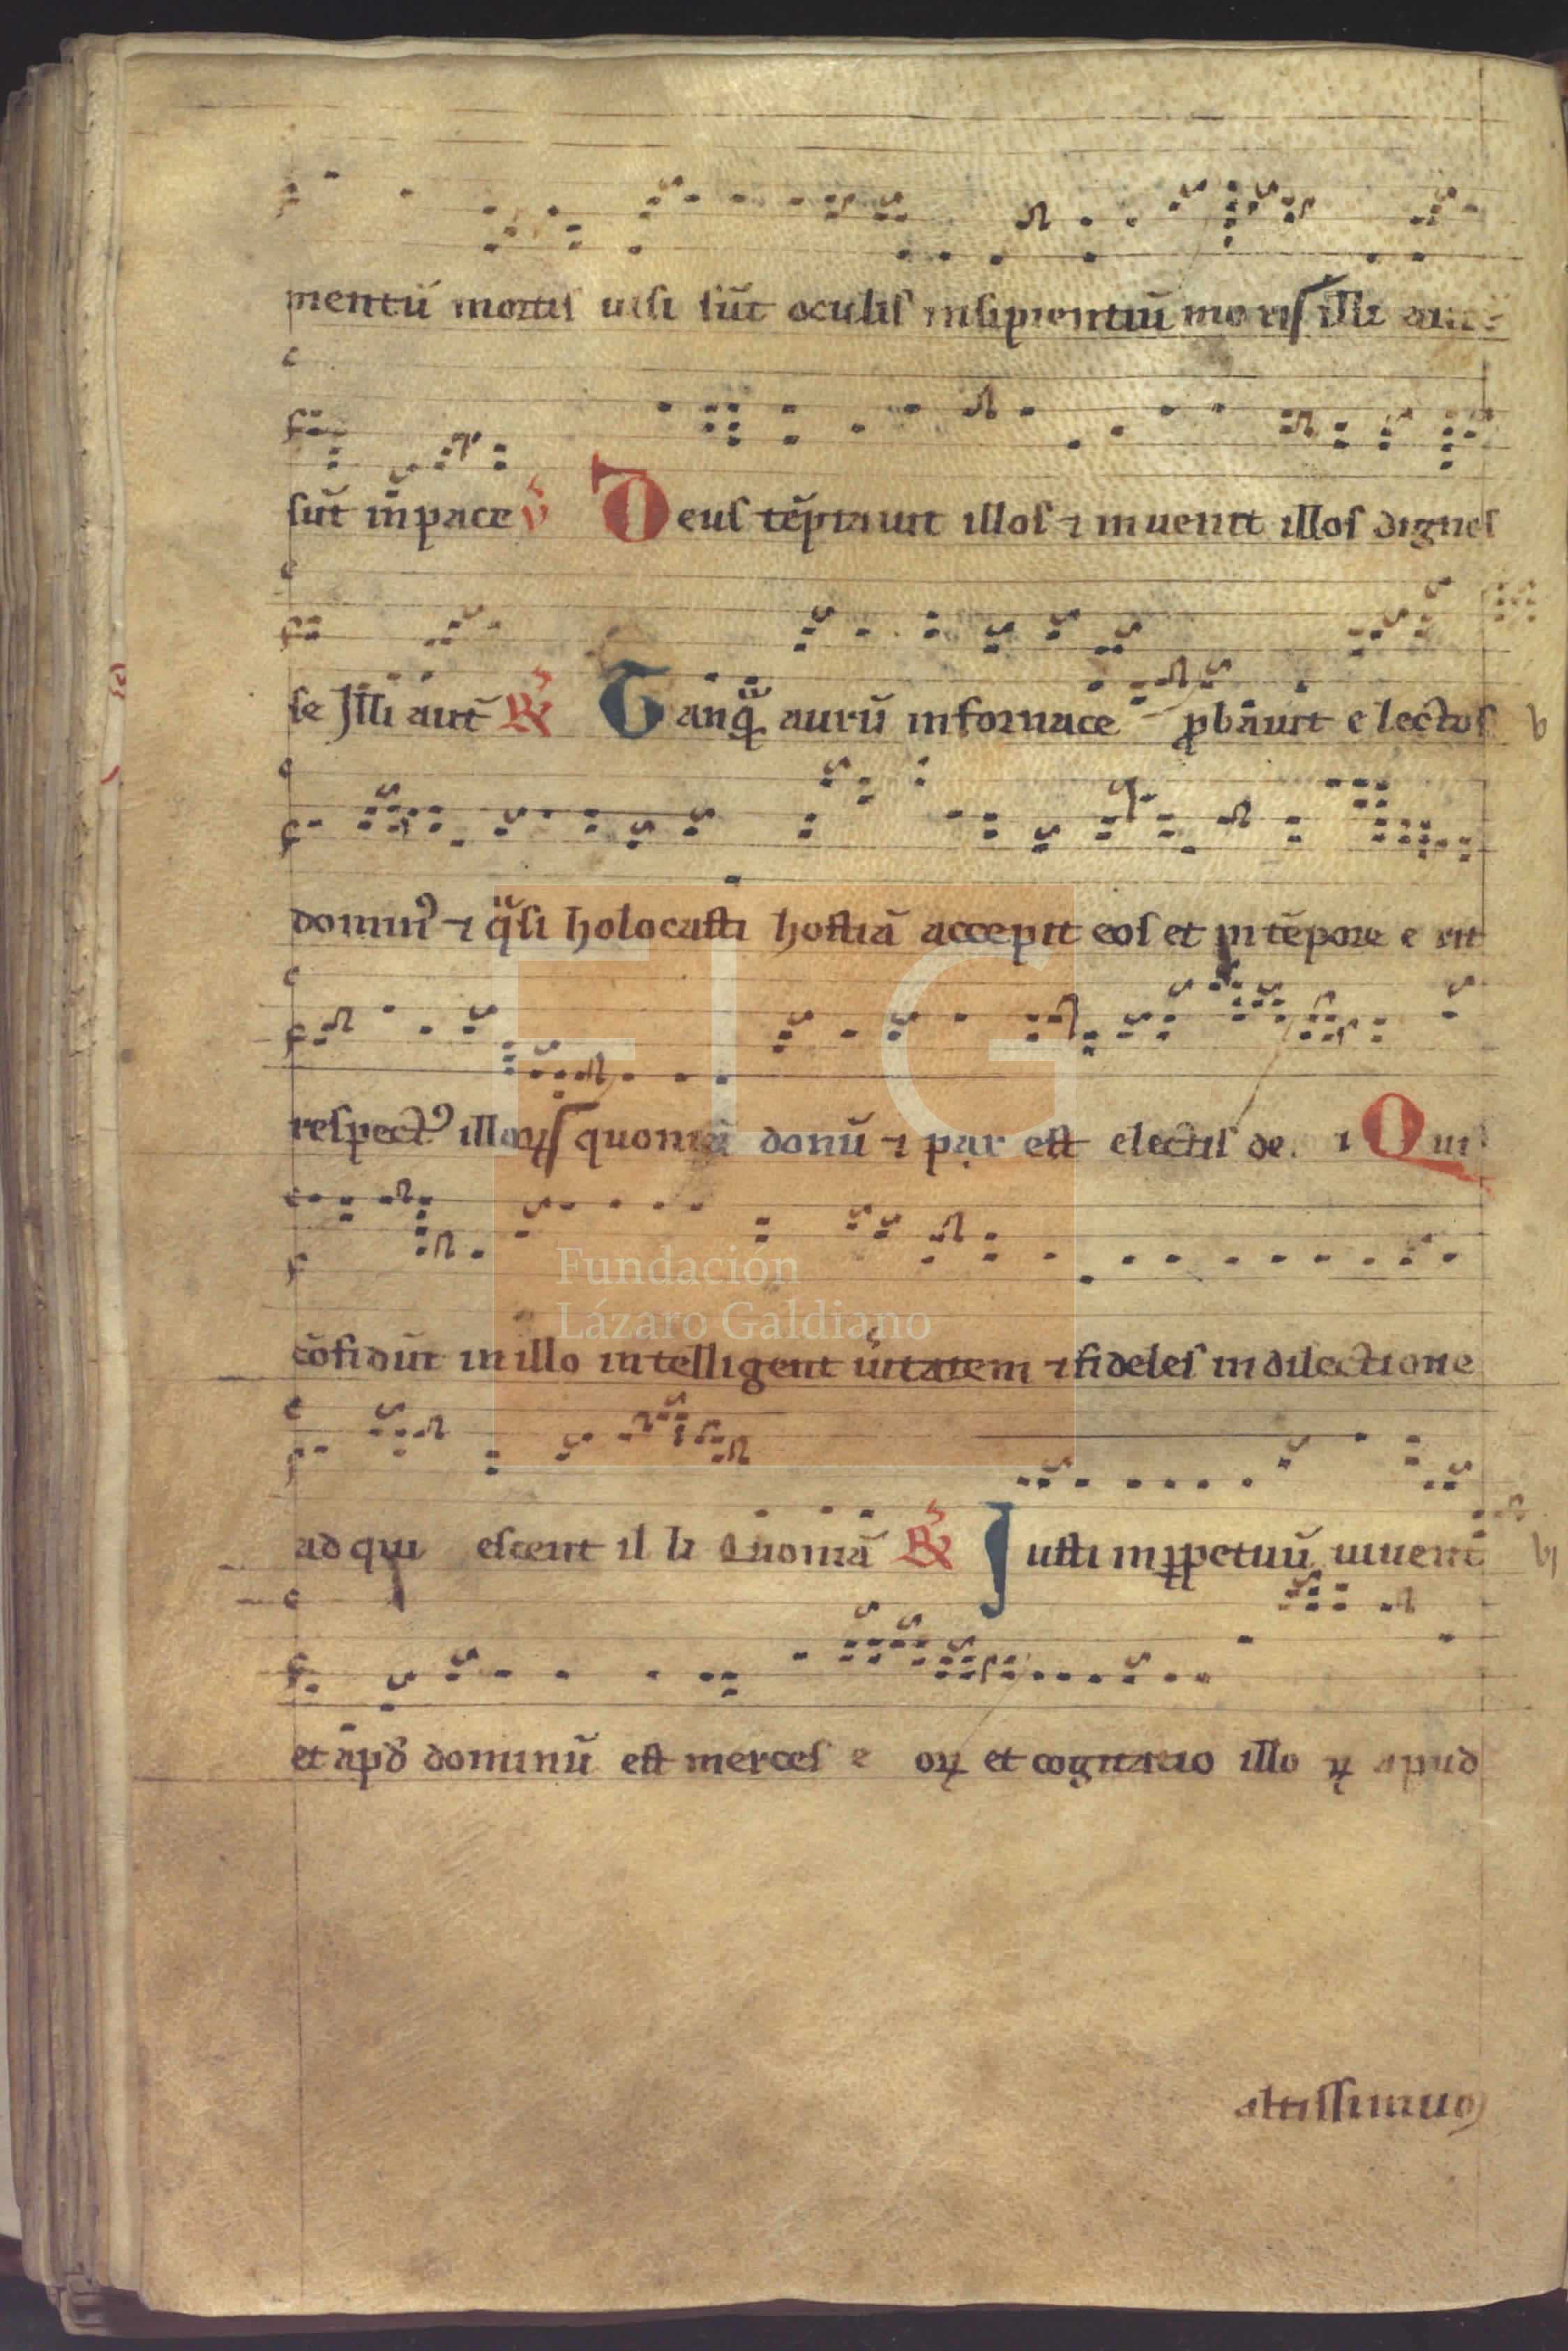 mentū mortis uisi sūt oculis insipientiū mo ris illi aut
sūt in pace ℣ Deus tēptauit illos ⁊ inuenit illos dignos
se Illi aut̄ ℟ Tanqͣ̄ aurū in fornace ꝓbāuit e lectos
dominꝰ ⁊ qͣsi holocasti hostiā accepit eos et in tēpore e rit
respectꝰ illoꝝ quoniā donū ⁊ pax est electis de i Qui
cōfidūt in illo intelligent ūitatem ⁊ fideles in dilectione
ad qui escent il li Quoniā ℟ Iusti in ꝑpetuū uiuent
et āpđ dominū est merces e oꝝ et cogitatio illo ꝝ apud
altissimuꝫ
Fundación
Lázaro Galdiano